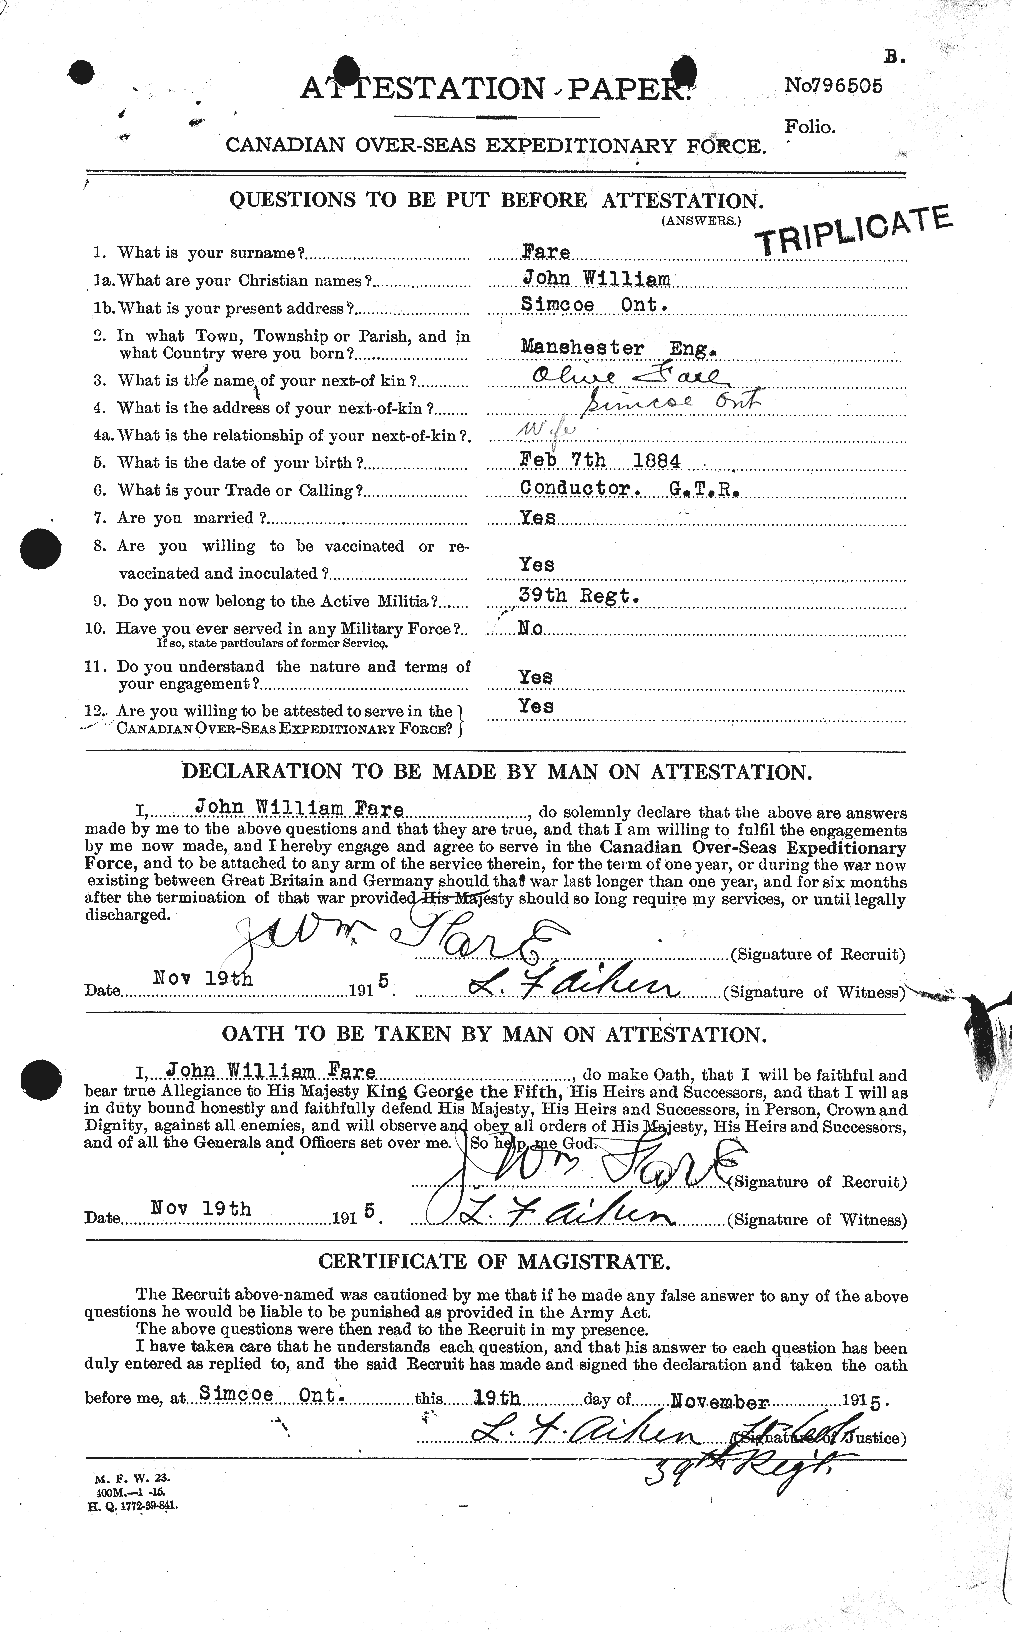 B.
ATTESTATION PAPER.
No796505
Folio.
CANADIAN OVER-SEAS EXPEDITIONARY FORCE.
QUESTIONS TO BE PUT BEFORE ATTESTATION.
(ANSWERS.)
TRIPLICATE
1. What is your surname? Fare
1a. What are your Christian names? John William
1b. What is your present address? Simcoe Ont.
2. In what Town, Township or Parish, and in
what Country were you born? Manshester Eng.
3. What is the name of your next-of kin? Olive Fare
4. What is the address of your next-of-kin? Simcoe Ont
4a. What is the relationship of your next-of-kin? Wife
5. What is the date of your birth? Feb 7th 1884
6. What is your Trade or Calling? Conductor. G.T.R.
7. Are you married? Yes
8. Are you willing to be vaccinated or re-
vaccinated and inoculated? Yes
9. Do you now belong to the Active Militia? 39th Regt.
10. Have you ever served in any Military Force? No
If so, state particulars of former Service.
11. Do you understand the nature and terms of
your engagement? Yes
12. Are you willing to be attested to serve in the Yes
CANADIAN OVER-SEAS EXPEDITIONARY FORCE?
DECLARATION TO BE MADE BY MAN ON ATTESTATION.
I, John William Fare, do solemnly declare that the above are answers
made by me to the above questions and that they are true, and that I am willing to fulfil the engagements
by me now made, and I hereby engage and agree to serve in the Canadian Over-Seas Expeditionary
Force, and to be attached to any arm of the service therein, for the term of one year, or during the war now
existing between Great Britain and Germany should that war last longer than one year, and for six months
after the termination of that war provided His Majesty should so long require my services, or until legally
discharged.
J Wm. Fare (Signature of Recruit)
Date Nov 19th 1915. L. F Aiken (Signature of Witness)
OATH TO BE TAKEN BY MAN ON ATTESTATION.
I, John William Fare, do make Oath, that I will be faithful and
bear true Allegiance to His Majesty King George the Fifth, His Heirs and Successors, and that I will as
in duty bound honestly and faithfully defend His Majesty, His Heirs and Successors, in Person, Crown and
Dignity, against all enemies, and will observe and obey all orders of His Majesty, His Heirs and Successors,
and of all the Generals and Officers set over me. So help me God.
J Wm Fare (Signature of Recruit)
Date Nov 19th 1915. L. F Aiken (Signature of Witness)
CERTIFICATE OF MAGISTRATE.
The Recruit above-named was cautioned by me that if he made any false answer to any of the above
questions he would be liable to be punished as provided in the Army Act.
The above questions were then read to the Recruit in my presence.
I have taken care that he understands each question, and that his answer to each question has been
duly entered as replied to, and the said Recruit has made and signed the declaration and taken the oath
before me, at Simcoe Ont. this 19th day of November 1915.
L. F. Aiken (Signature of Justice)
39th Regt.
M. F. W. 23.
400M.—1 -15.
H. Q. 1772-39-841.